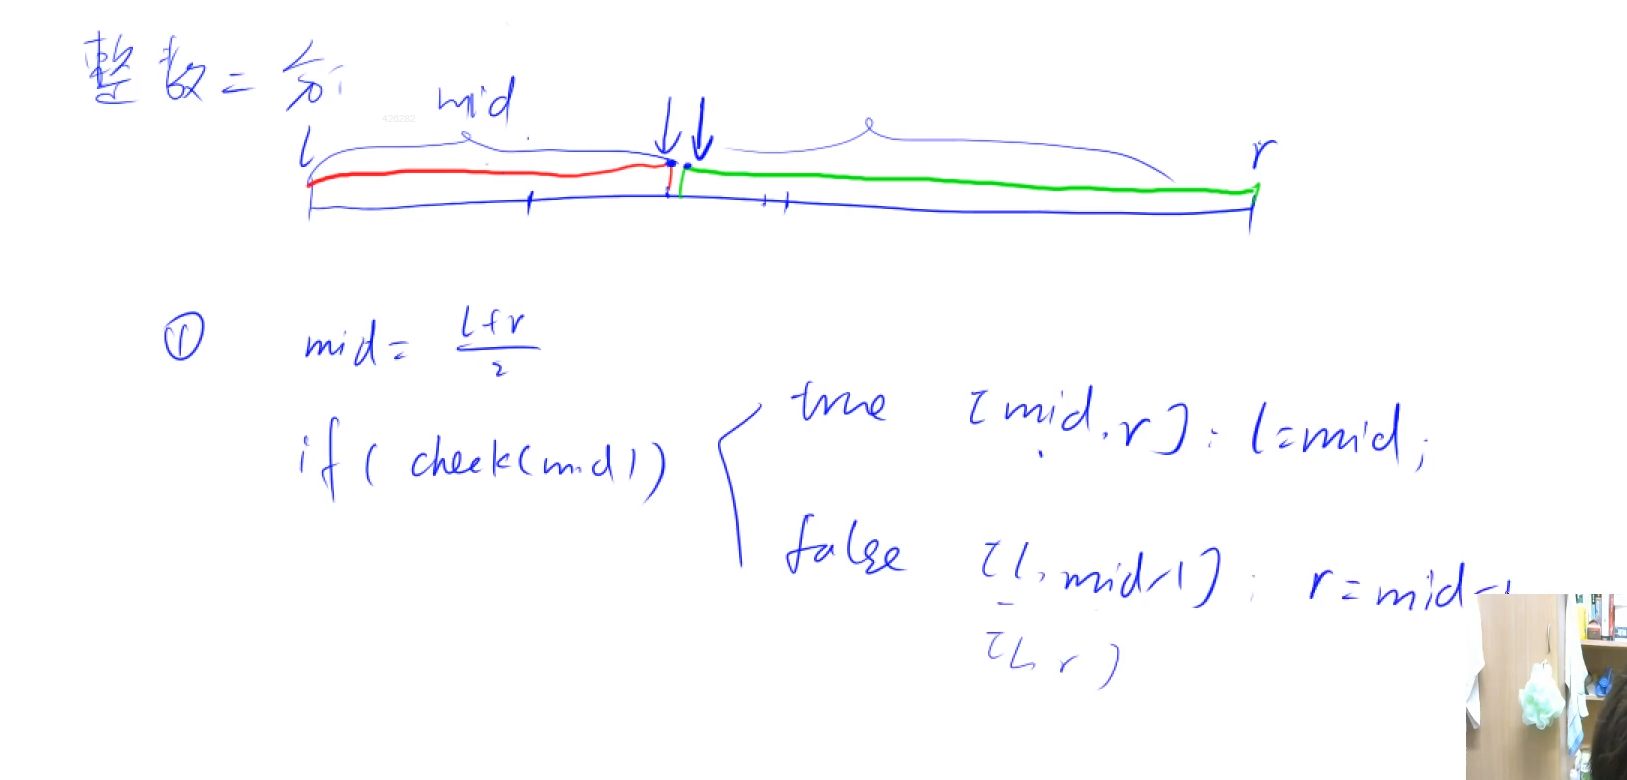 整数二分
mid
l
r
420282
① mid = l+r/2
if ( check(mid))
true [mid, r] : l=mid;
false [l, mid-1] : r=mid-1
[l, r]